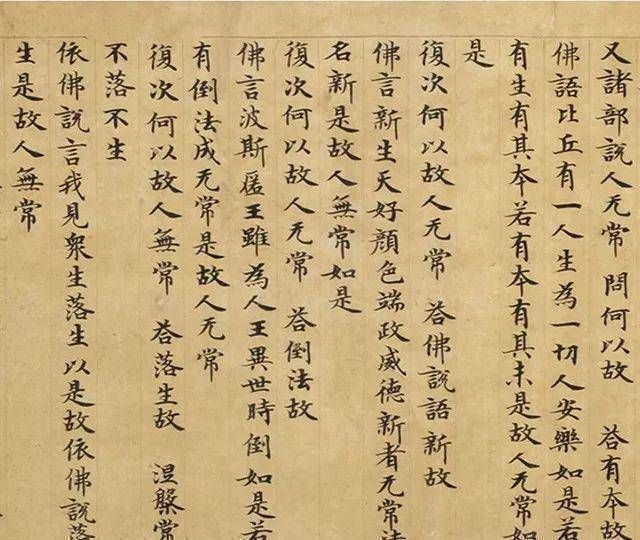 又諸部說人无常 問何以故 荅有本故
佛語比丘有一人生為一切人安樂如是若
有生有其本若有本有其末是故人无常如
是
復次何以故人无常 荅佛說語新故
佛言新生天好顏色端政威德新者无常法
名新是故人無常如是
復次何以故人无常 荅倒法故
佛言波斯匿王雖為人王異世時倒如是若
有倒法成无常是故人无常
復次何以故人無常 荅落生故 涅槃常
不落不生
依佛說言我見衆生落生以是故依佛說落
生是故人無常